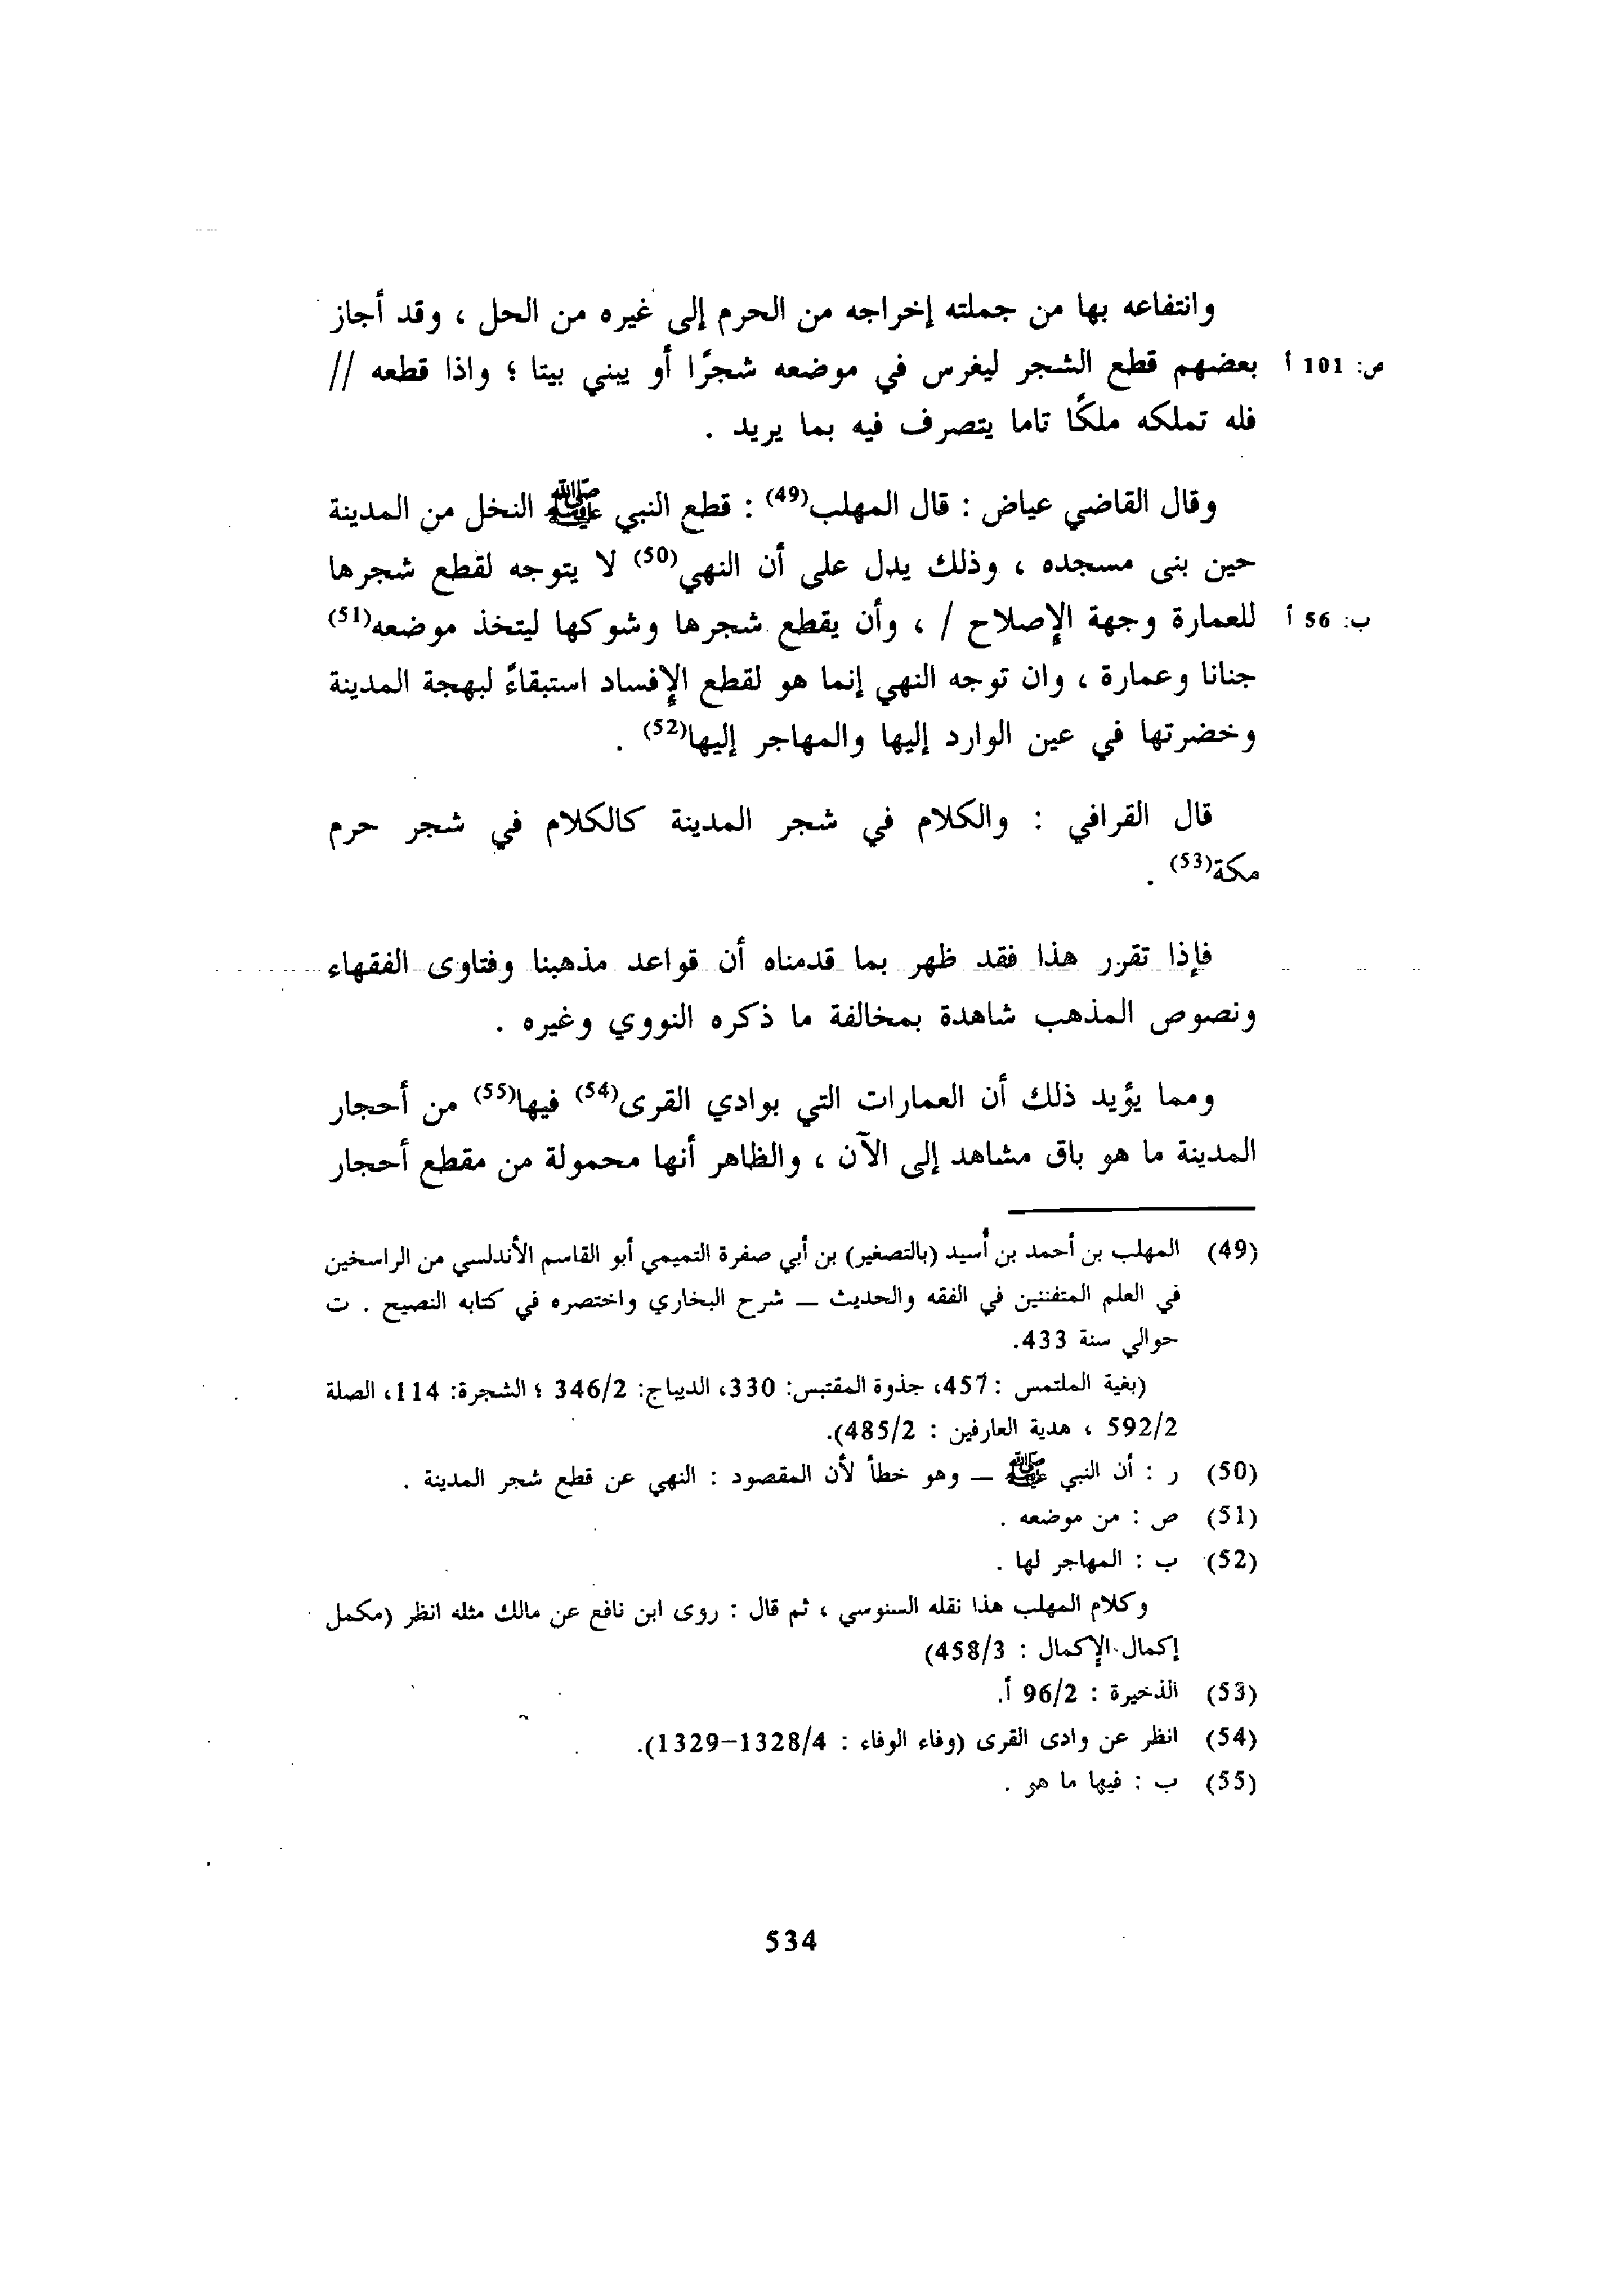 وانتفاعه بها من جملته إخراجه من الحرم إلى غيره من الحل ، وقد أجاز
ص: 101 أ بعضهم قطع الشجر ليغرس في موضعه شجرًا أو يبني بيتا ؛ واذا قطعه //
فله تملكه ملكًا تاما يتصرف فيه بما يريد .
وقال القاضي عياض : قال المهلب(49) : قطع النبي ﷺ النخل من المدينة
حين بنى مسجده ، وذلك يدل على أن النهي(50) لا يتوجه لقطع شجرها
ب: 56 أ للعمارة وجهة الإصلاح / ، وأن يقطع شجرها وشوكها ليتخذ موضعه(51)
جنانا وعمارة ، وان توجه النهي إنما هو لقطع الإفساد استبقاءً لبهجة المدينة
وخضرتها في عين الوارد إليها والمهاجر إليها(52) .
قال القرافي : والكلام في شجر المدينة كالكلام في شجر حرم
مكة(53) .
فإذا تقرر هذا فقد ظهر بما قدمناه أن قواعد مذهبنا وفتاوى الفقهاء
ونصوص المذهب شاهدة بمخالفة ما ذكره النووي وغيره .
ومما يؤيد ذلك أن العمارات التي بوادي القرى(54) فيها(55) من أحجار
المدينة ما هو باق مشاهد إلى الآن ، والظاهر أنها محمولة من مقطع أحجار
(49) المهلب بن أحمد بن أسيد (بالتصغير) بن أبي صفرة التميمي أبو القاسم الأندلسي من الراسخين
في العلم المتفننين في الفقه والحديث — شرح البخاري واختصره في كتابه النصيح . ت
حوالي سنة 433.
(بغية الملتمس : 457، جذوة المقتبس: 330، الديباج: 346/2 ؛ الشجرة: 114، الصلة
592/2 ، هدية العارفين : 485/2).
(50) ر : أن النبي ﷺ — وهو خطأ لأن المقصود : النهي عن قطع شجر المدينة .
(51) ص : من موضعه .
(52) ب : المهاجر لها .
وكلام المهلب هذا نقله السنوسي ، ثم قال : روى ابن نافع عن مالك مثله انظر (مكمل
إكمال الإكمال : 458/3)
(53) الذخيرة : 96/2 أ.
(54) انظر عن وادى القرى (وفاء الوفاء : 1328/4–1329).
(55) ب : فيها ما هو .
534